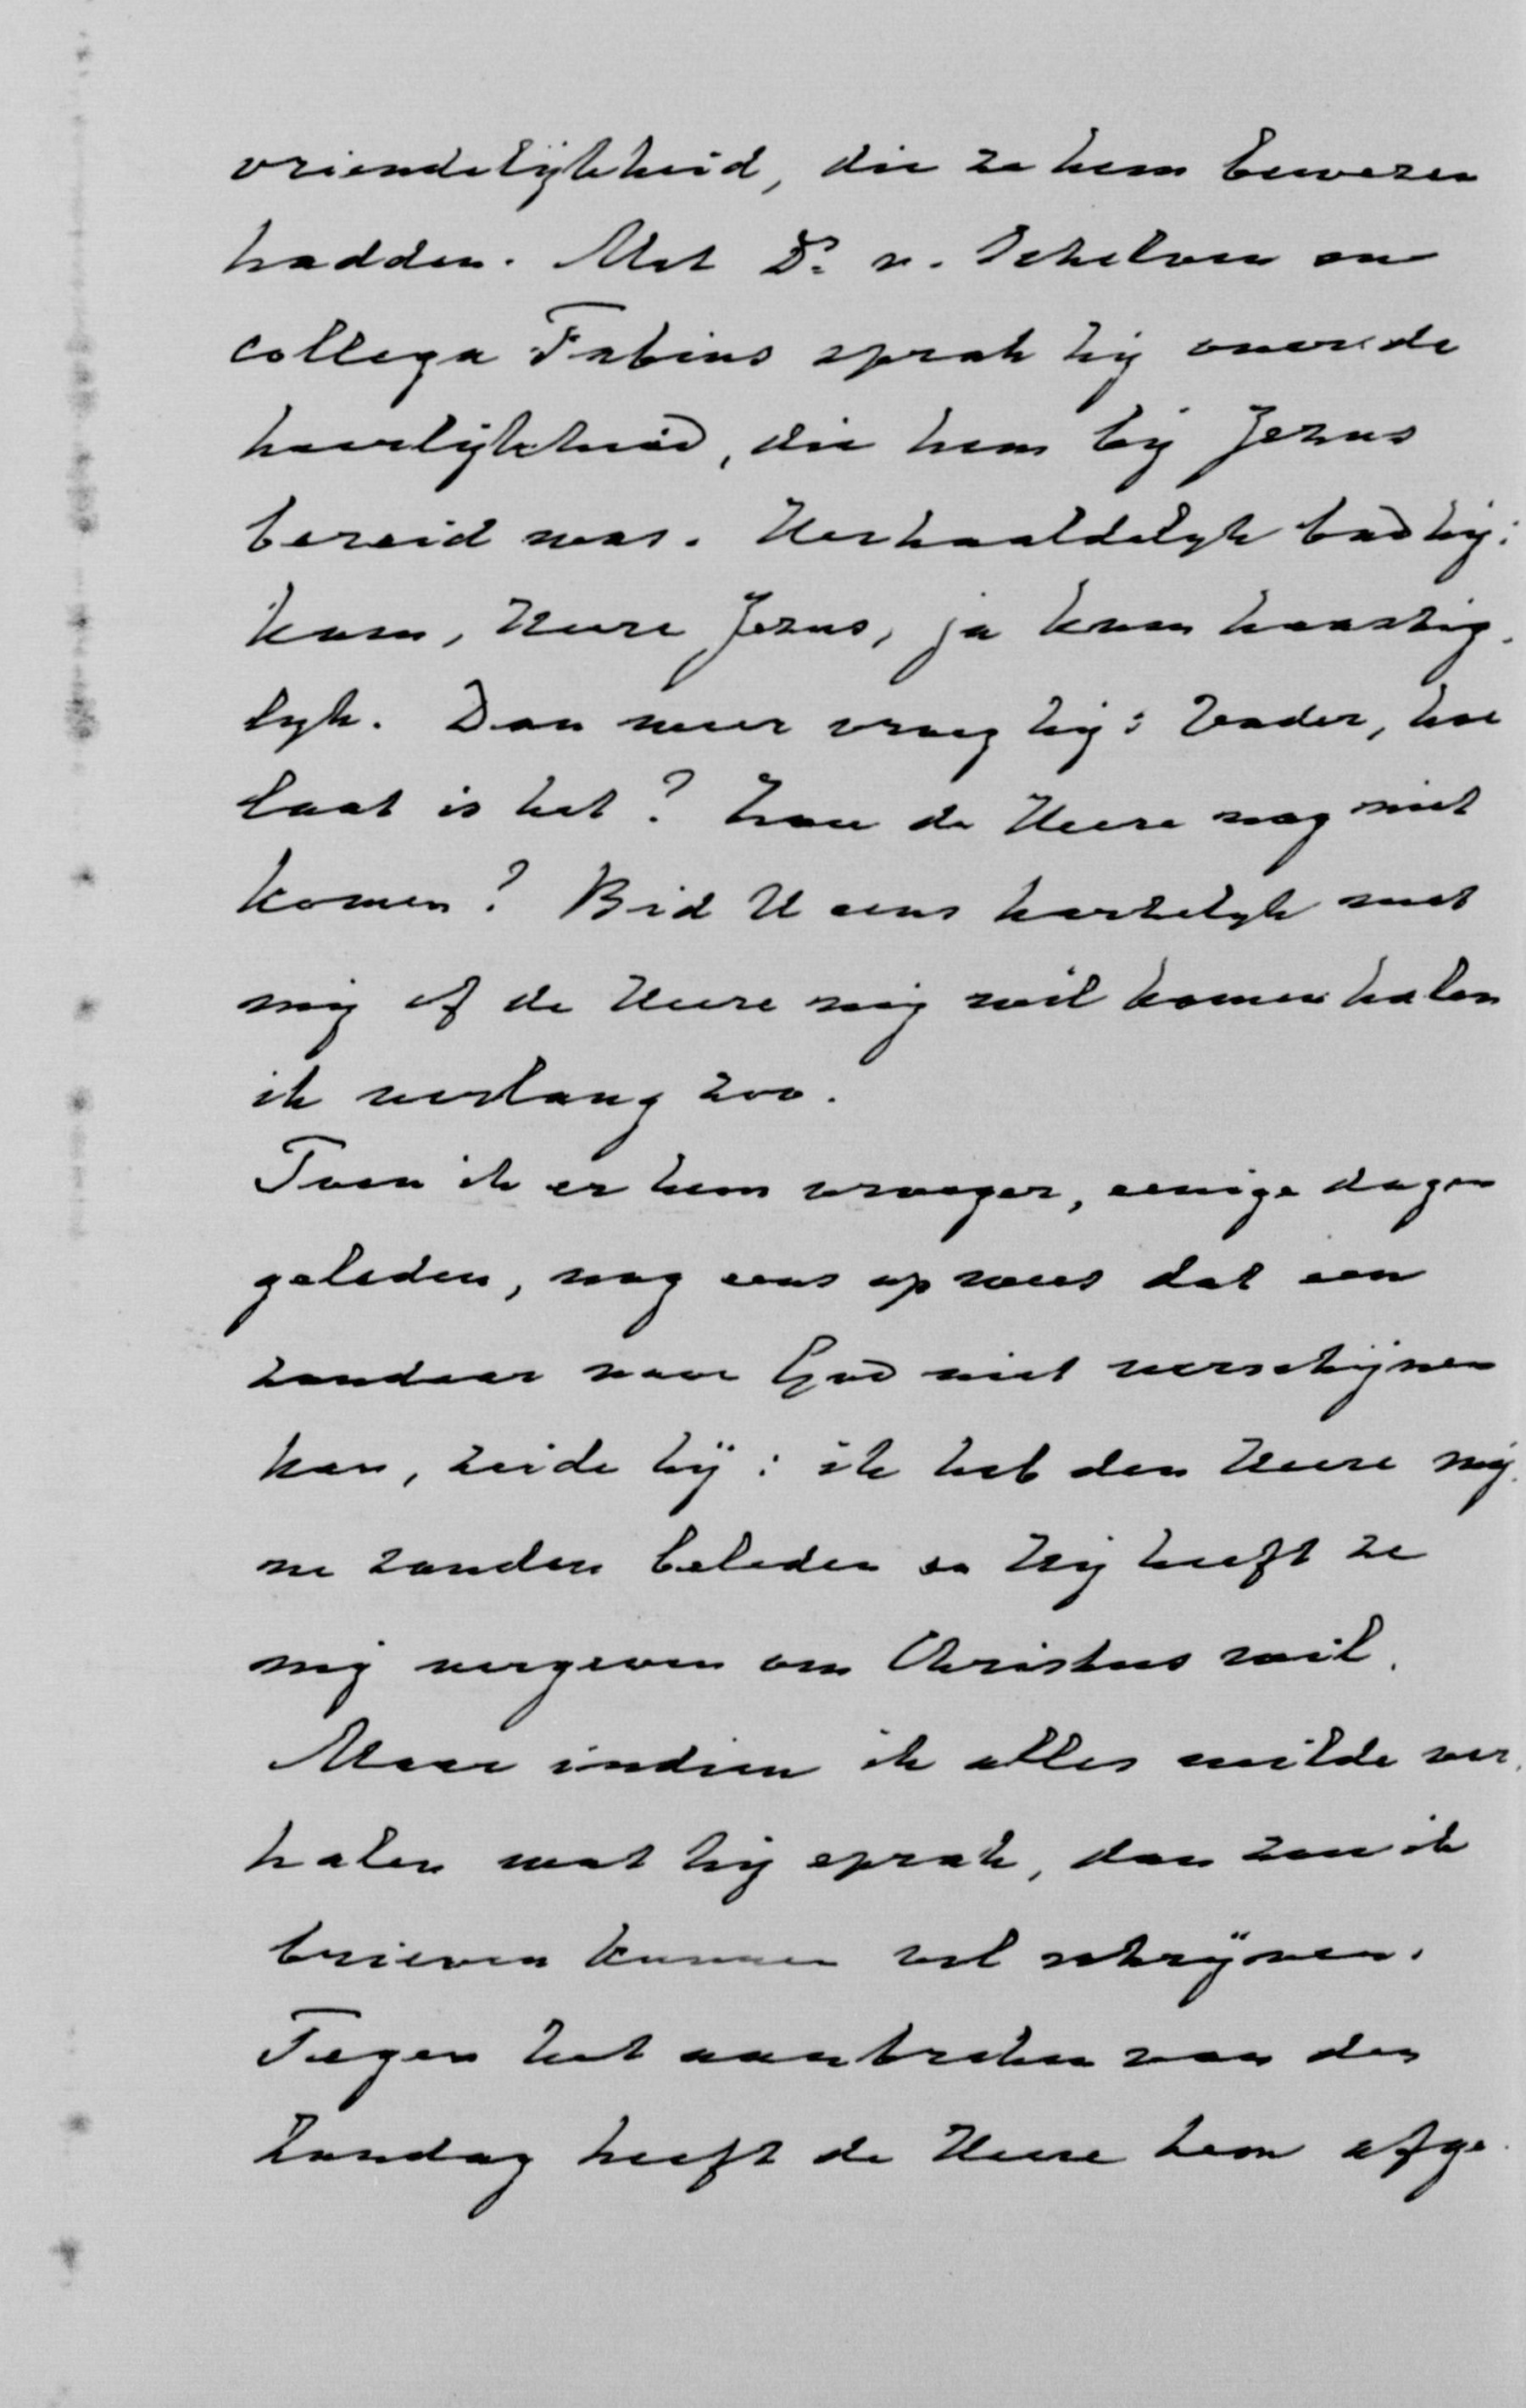 vriendelijkheid, die ze hem bewezen
hadden. Met Ds. v. Schelven en
collega Fabius sprak hij over de
heerlijkheid, die hem bij Jezus
bereid was. Herhaaldelijk bad hij:
kom, Heere Jezus, ja kom haastig-
lijk. Dan weer vroeg hij: Vader, hoe
laat is het? Zou de Heere nog niet
komen? Bid U eens hartelijk met
mij of de Heere mij wil komen halen
ik verlang zoo.
Toen ik er hem vroeger, eenige dagen
geleden, nog eens op wees dat een
zondaar voor God niet verschijnen
kan, zeide hij: ik heb den Heere mij-
ne zonden beleden en Hij heeft ze
mij vergeven om Christus wil.
Maar indien ik alles wilde ver-
halen wat hij sprak, dan zou ik
brieven kunnen vol schrijven.
Tegen het aanbreken van den
Zondag heeft de Heere hem afge-